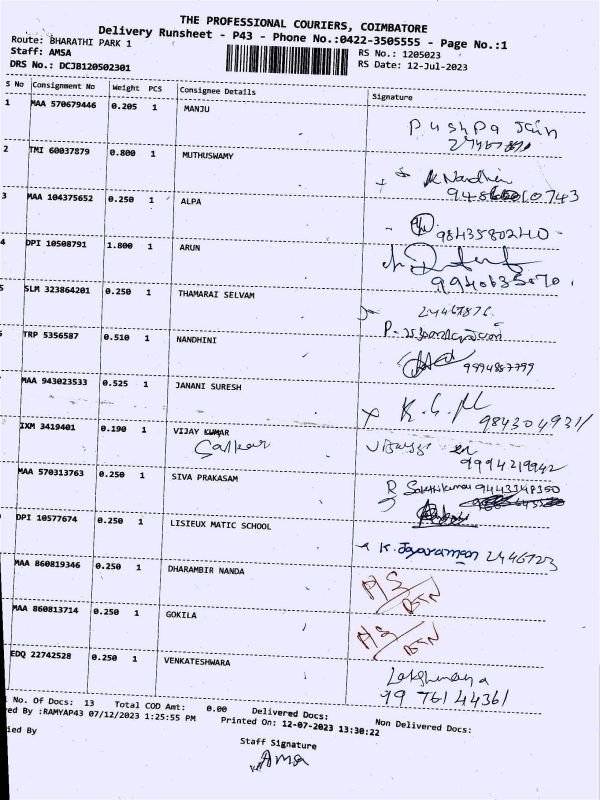 THE PROFESSIONAL COURIERS, COIMBATORE
Delivery Runsheet - P43 - Phone No.:0422-3505555 - Page No.:1
Route: BHARATHI PARK 1
RS No.: 1205023
Staff: AMSA
RS Date: 12-Jul-2023
DRS No.: DCJB120502301
S No Consignment No Weight PCS Consignee Details Signature
1 MAA 570679446 0.205 1 MANJU
Pushpa Jain
2 TMI 60037879 0.800 1 MUTHUSWAMY
3 MAA 104375652 0.250 1 ALPA
9843580240
4 DPI 10508791 1.800 1 ARUN
5 SLM 323864201 0.250 1 THAMARAI SELVAM
TRP 5356587 0.510 1 NANDHINI
MAA 943023533 0.525 1 JANANI SURESH
IXM 3419401 0.190 1 VIJAY KUMAR
9994219942
MAA 570313763 0.250 1 SIVA PRAKASAM
DPI 10577674 0.250 1 LISIEUX MATIC SCHOOL
K. Jayaraman 2446723
MAA 860819346 0.250 1 DHARAMBIR NANDA
MAA 860813714 0.250 1 GOKILA
EDQ 22742528 0.250 1 VENKATESHWARA
99 76144361
No. Of Docs: 13 Total COD Amt: 0.00 Delivered Docs: Non Delivered Docs:
ed By :RAMYAP43 07/12/2023 1:25:55 PM Printed On: 12-07-2023 13:30:22
ied By
Staff Signature
Amsa